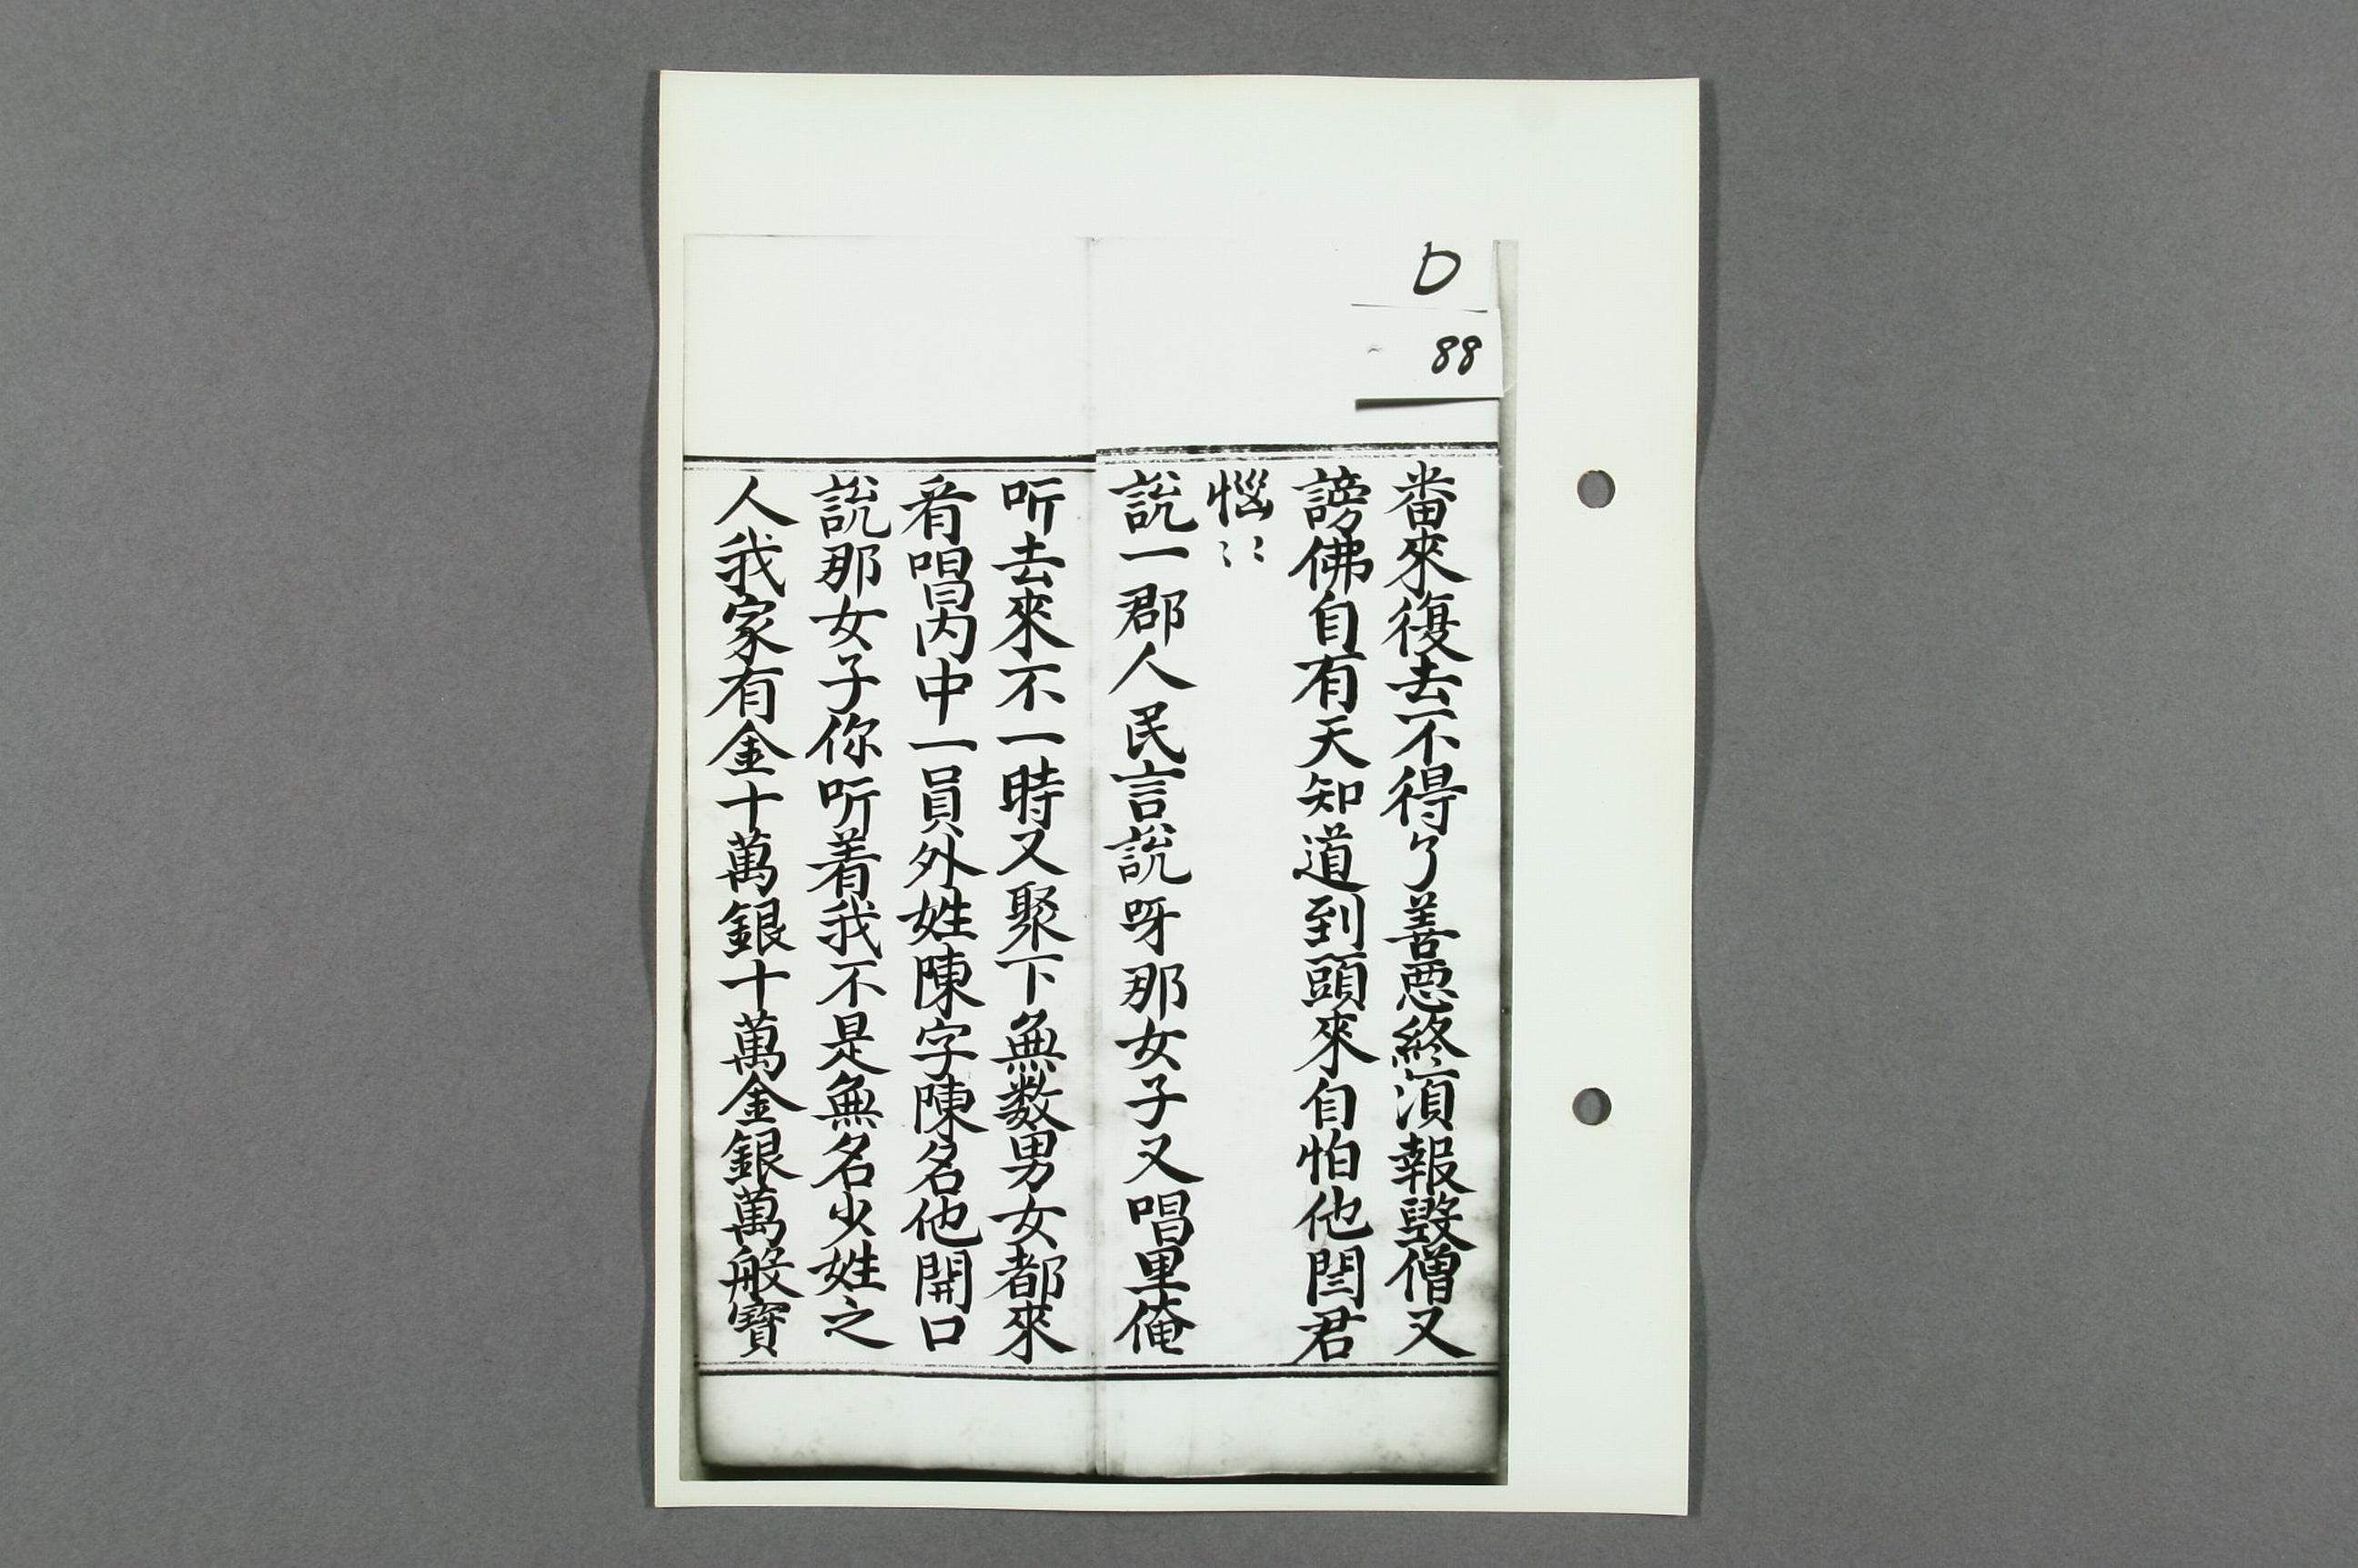 D
88
畨來復去不得了善惡終湏報毀僧又
謗佛自有天知道到頭來自怕他閻君
惱〻〻
說一郡人民言說呀那女子又唱里俺
听去來不一時又聚下無数男女都來
看唱內中一員外姓陳字陳名他開口
說那女子你听着我不是無名少姓之
人我家有金十萬銀十萬金銀萬般寶